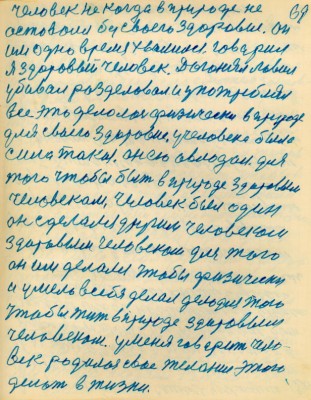 68
человек не когда в природе не
оставали бы своего здоровие. Он
им одно время хвалился. говарил
Я здоровый человек. Я гонял ловил
убивал розделовал и употреблял
Все это делолось физически в природе
для своего здоровие, у человека была
сила такая, он ею овлодал для
того чтобы быть в природе здоровым
человекам, человек был один
он сделался другим человеком
здаровым человеком для того
он им делался чтобы физически
и умело в себя делал дело для того
чтобы жить в природе здаровым
человеком. у меня говарит чело-
век родилося свое желание этого
делоть в жизни.